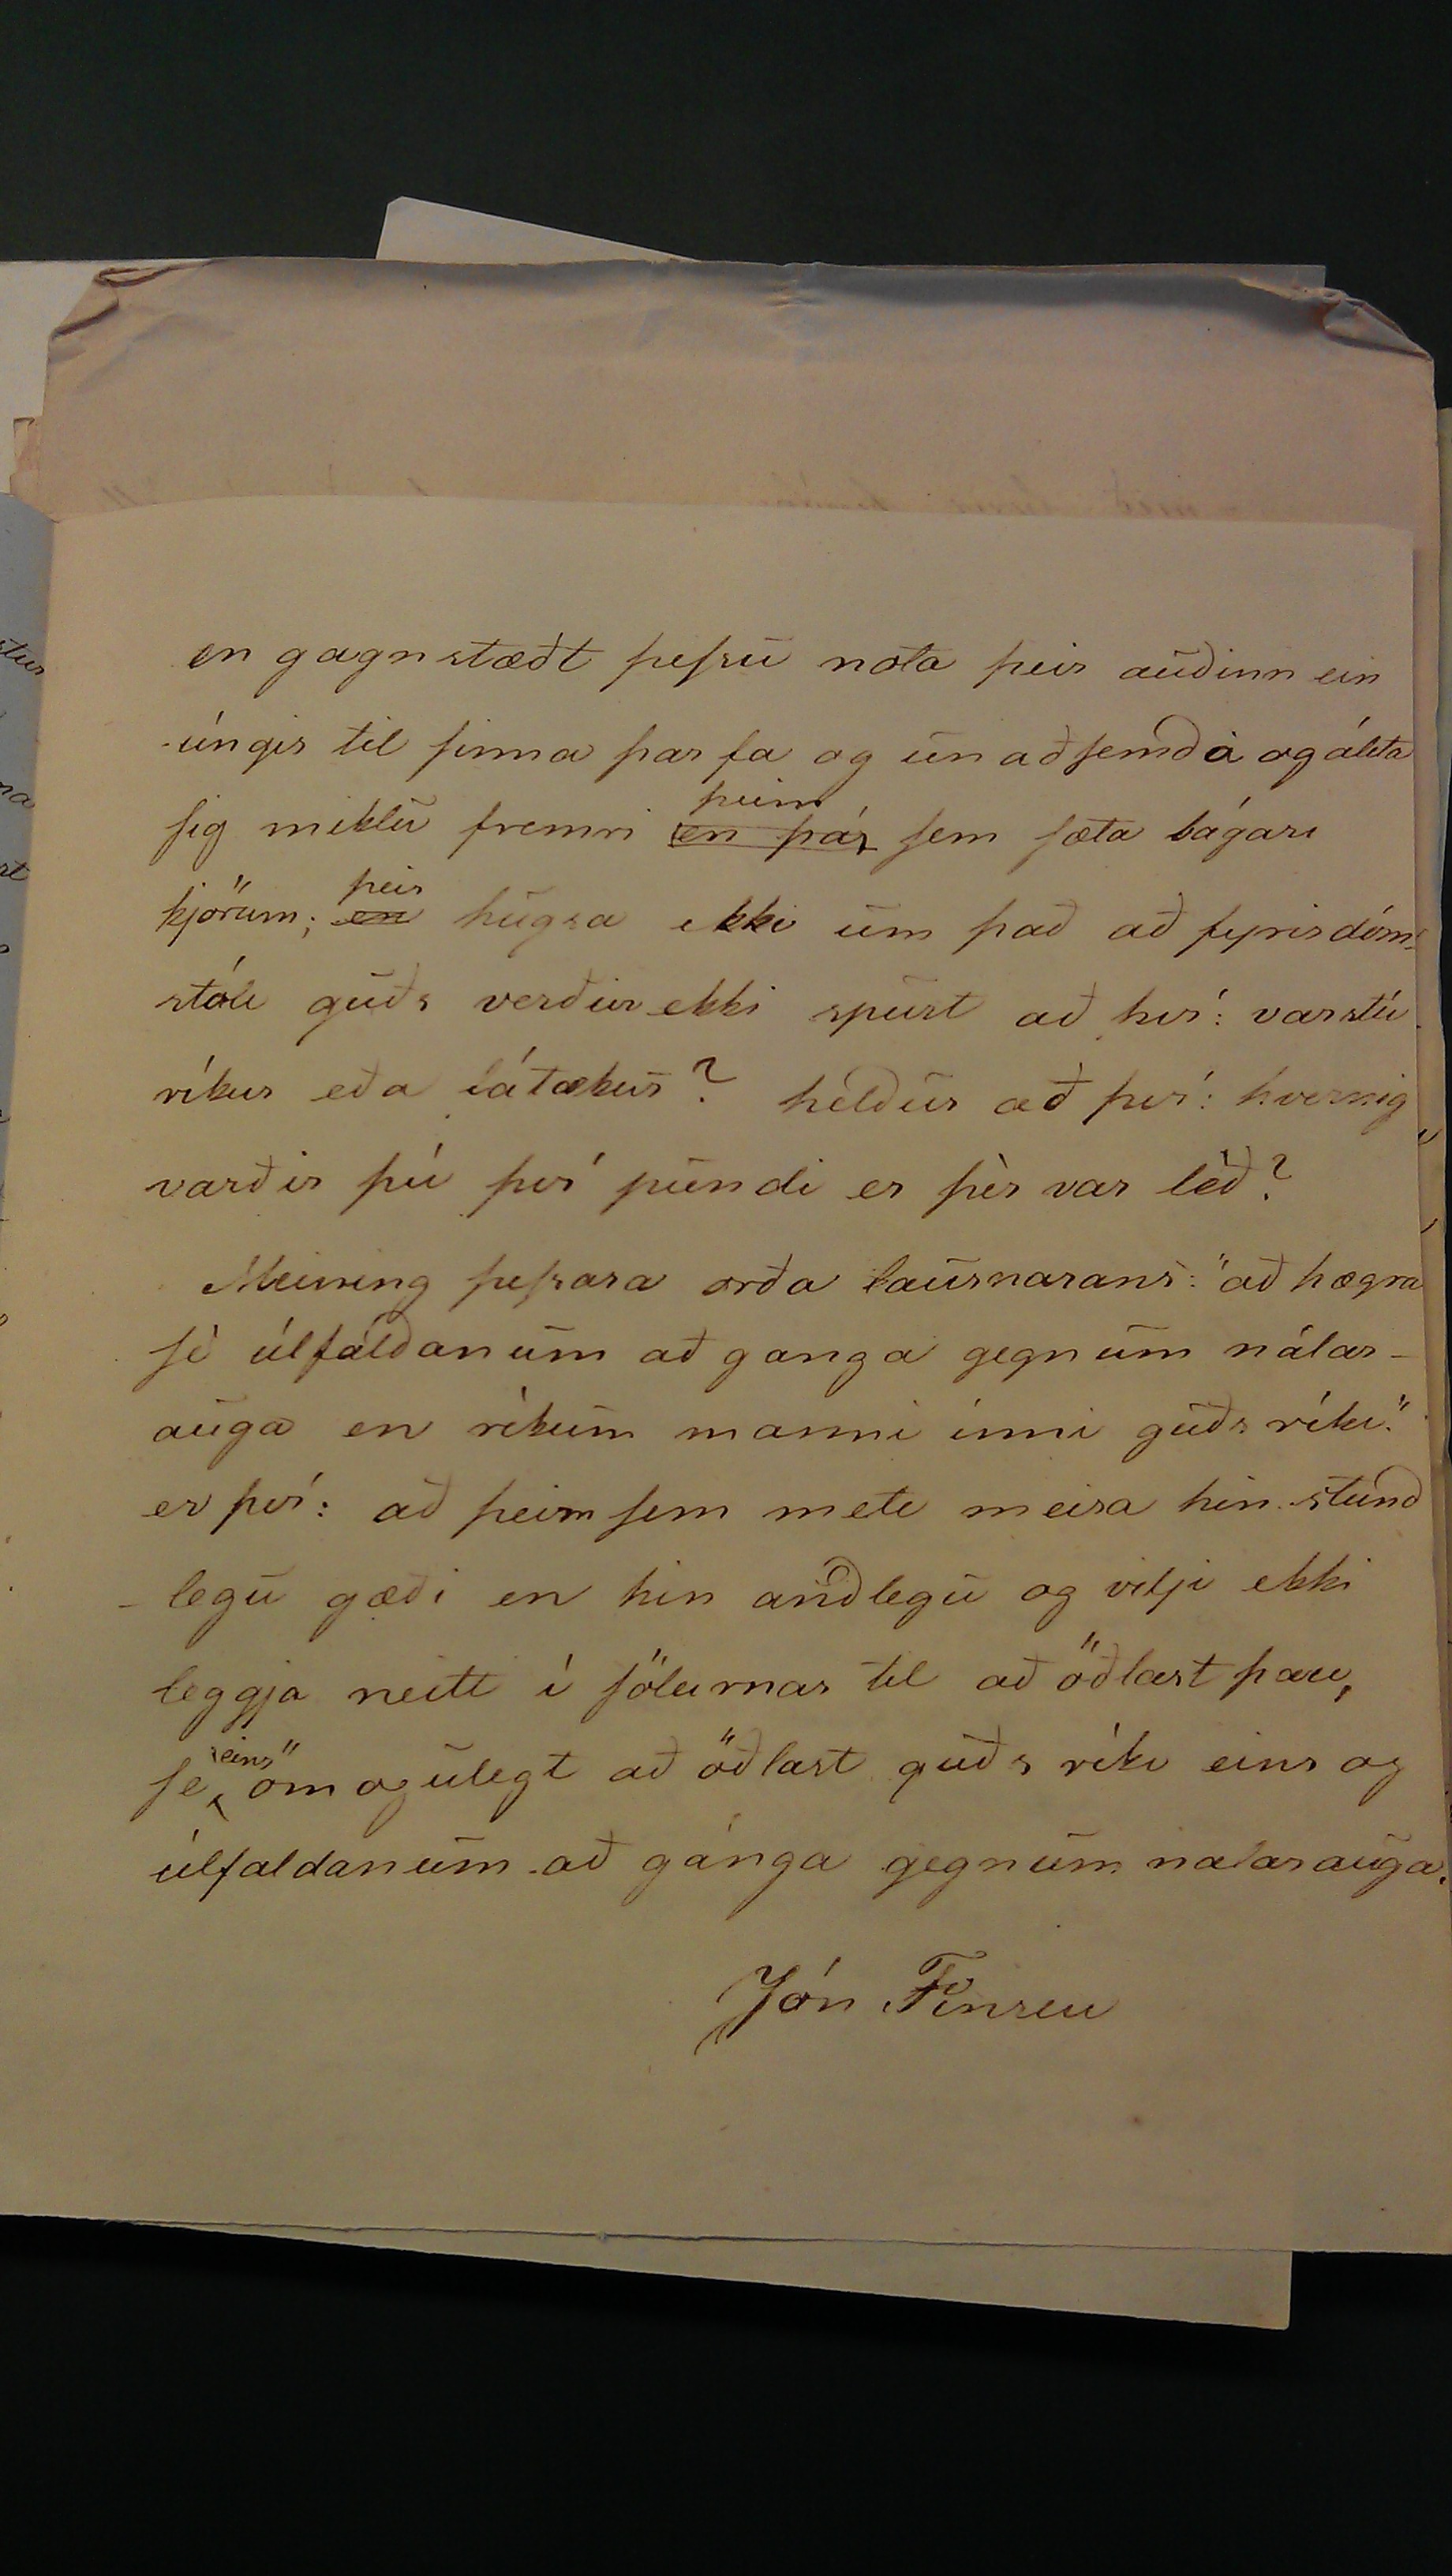 en gagnstæðt þessu nota þeir auðinn ein
-úngis til sinna þarfa og unaðsemda og álíta
sig miklu fremri þeim en þá, sem sæta bágari
kjörum; þeir en hugsa ekki um það að fyrir dóm-
stóli guðs verður ekki spurt að því: varstu
ríkur eða fátækur? heldur að því: hvernig
varðir þú því pundi er þèr var léð?
Meining þessara orða lausnarans: "að hægra
sè úlfaldanum að ganga gegnum nálar-
auga en ríkum manni inni guðs ríki"
er því: að þeim sem meti meira hin stund
-legu gæði en hin andlegu og vilji ekki
leggja neitt í sölurnar til að öðlast þau,
se "eins" omögulegt að öðlast guðs ríki eins og
úlfaldanum að gánga gegnum nalarauga.
Jón Finsen